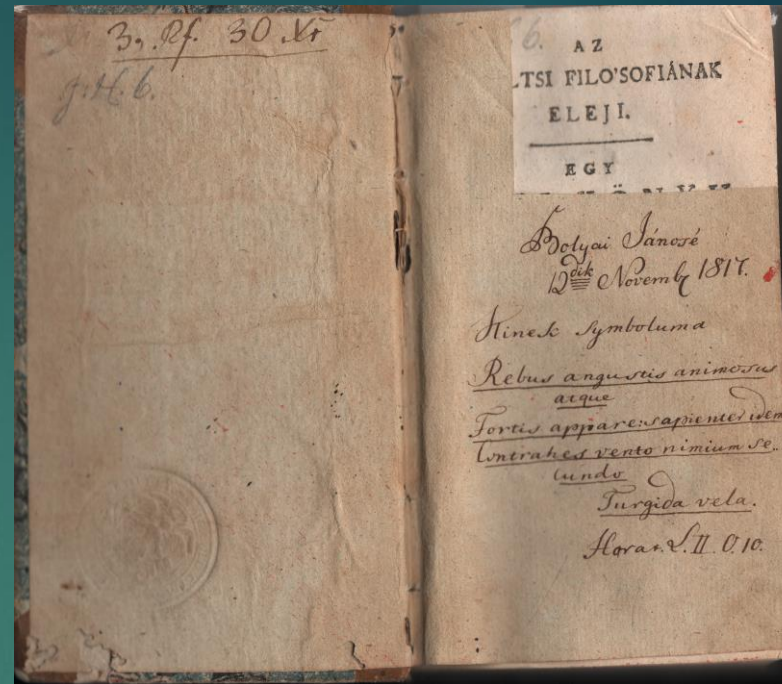 3. Rf. 30 Xr
J. H. 6.
6.
AZ
LTSI FILO'SOFIÁNAK
ELEJI.
EGY
Bolyai Jánosé
12dik Novemb 1817.
Kinek Symboluma
Rebus angustis animosus
atque
Fortis appare: sapienter idem
Contrahes vento nimium se..
cundo
Turgida vela.
Horat. L. II. O. 10.